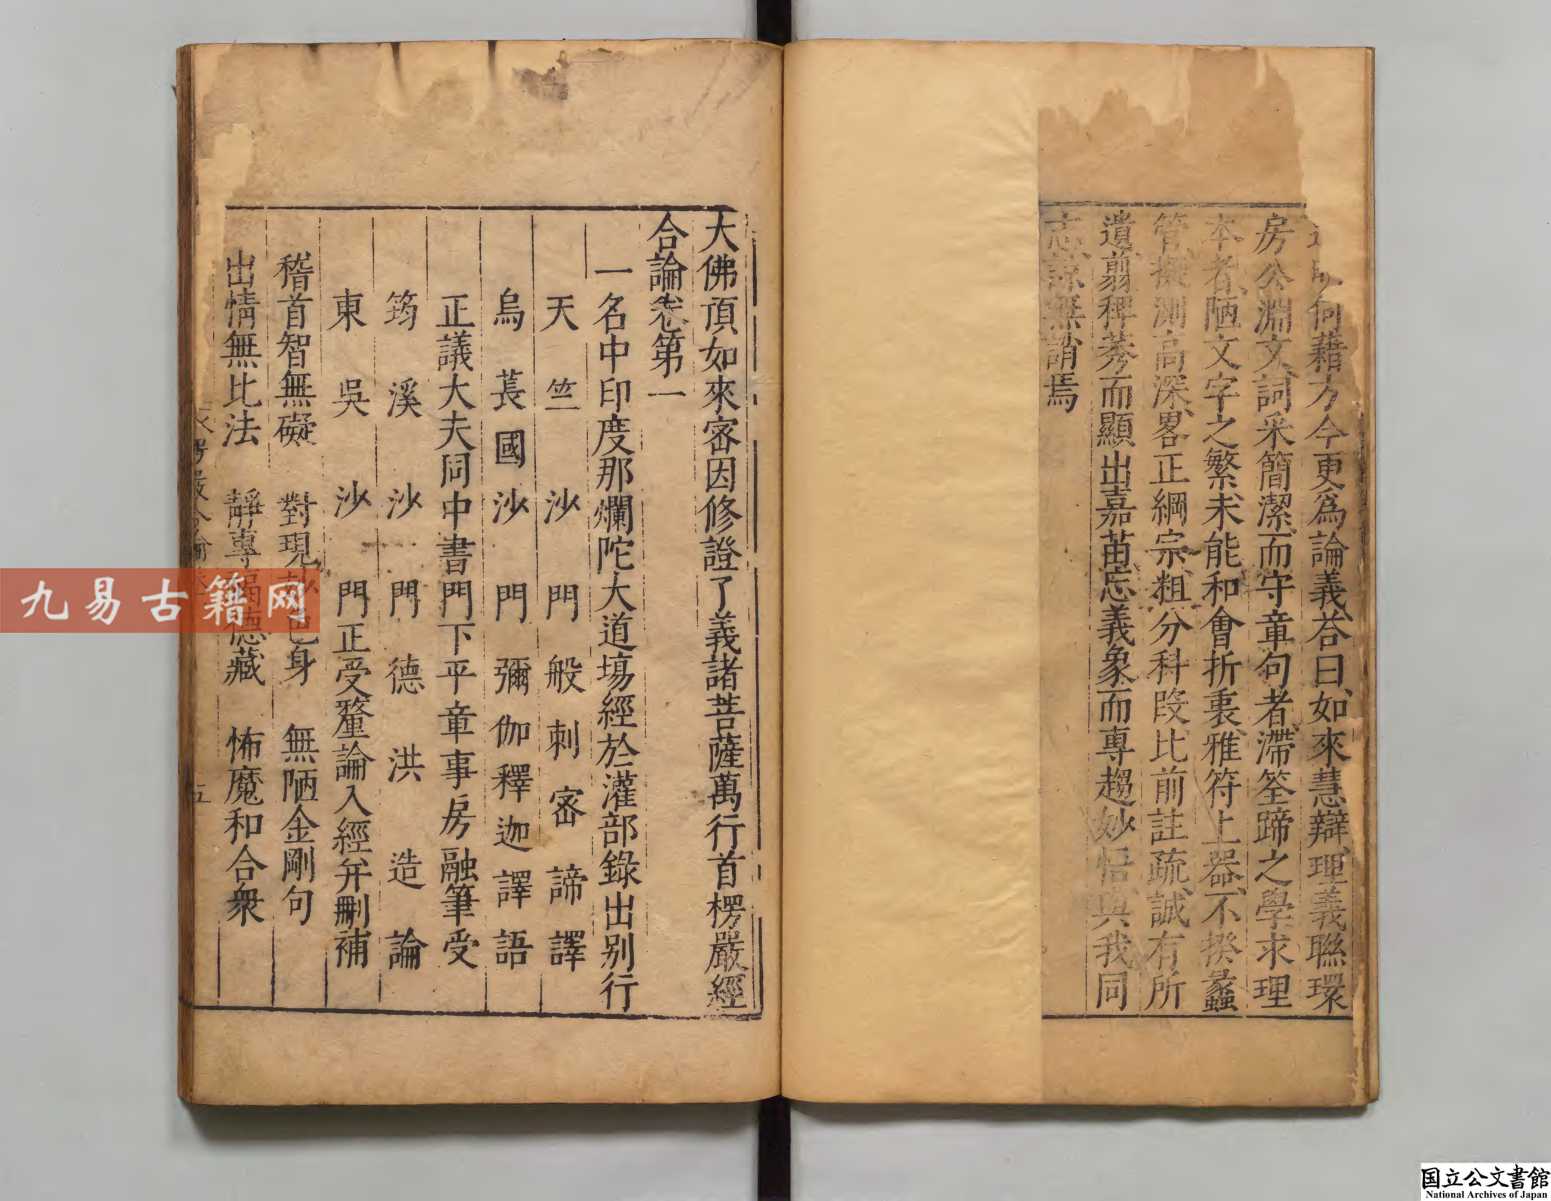 何藉方今更為論義荅曰如來慧辯理義聯環
房公淵文詞米簡潔而守章句者滯筌蹄之學求理
本者陋文字之繁未能和會折衷雅符上器不揆蠡
管擬測高深畧正綱宗粗分科段比前註疏誠有所
遺翦稗莠而顯出嘉苗忘義象而專趨妙悟與我同
志諒無誚焉
大佛頂如來密因修證了義諸菩薩萬行首楞嚴經
合論卷第一
一名中印度那爛陀大道場經於灌部錄出別行
天竺沙門般剌密諦譯
烏萇國沙門彌伽釋迦譯語
正議大夫同中書門下平章事房融筆受
筠溪沙門德洪造論
東吳沙門正受釐論入經并刪補
稽首智無礙 對現色身 無陋金剛句
出情無比法 靜專德藏 怖魔和合衆
楞嚴合論
五
九易古籍网
国立公文書館
National Archives of Japan